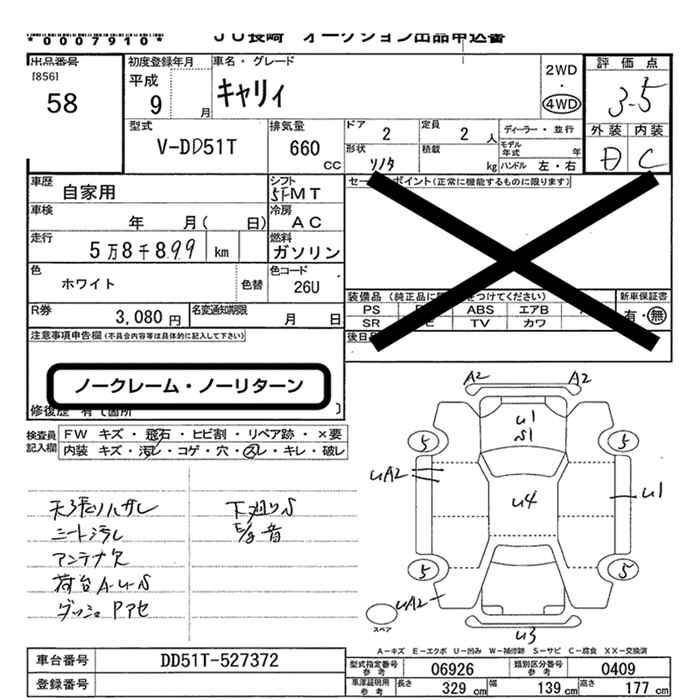 *0007910*
JU長崎 オークション出品申込書
出品番号
[856]
58
初度登録年月
平成
9 月
車名・グレード
キャリィ
2WD
・
4WD
評価点
3.5
外装 内装
D C
型式
V-DD51T
排気量
660
CC
ドア
2
定員
2 人
ディーラー・並行
モデル年式 年
形状
積載
kg
ハンドル 左・右
車歴
自家用
シフト
5F MT
セールスポイント(正常に機能するものに限ります)
車検
年 月( 日)
冷房
AC
走行
5万8千899 km
燃料
ガソリン
色
ホワイト
色替
色コード
26U
装備品(純正品に
をつけてください)
新車保証書
PS
ABS エアB
有・無
SR
TV カワ
R券
3,080円
名変通知期限
月 日
後日
注意事項申告欄(不具合内容等は具体的に記入して下さい)
ノークレーム・ノーリターン
修復歴 有て箇所
検査員
記入欄
FW キズ・飛石・ヒビ割・リペア跡・×要
内装 キズ・汚レ・コゲ・穴・スレ・キレ・破レ
天張りハガレ
シート汚レ
アンテナ欠
荷台A-U-S
ダッシュPアセ
下廻りS
E/g音
A2 A2
U1
S1
5 5
UA2
U4
U1
5 5
UA2
スペア
U3
A-キズ E-エクボ U-凹み W-補修跡 S-サビ C-腐食 XX-交換済
車台番号
DD51T-527372
登録番号
型式指定番号
参考
06926
類別区分番号
参考
0409
車庫証明用
参考
長さ 329 cm
幅 139 cm
高さ 177 cm